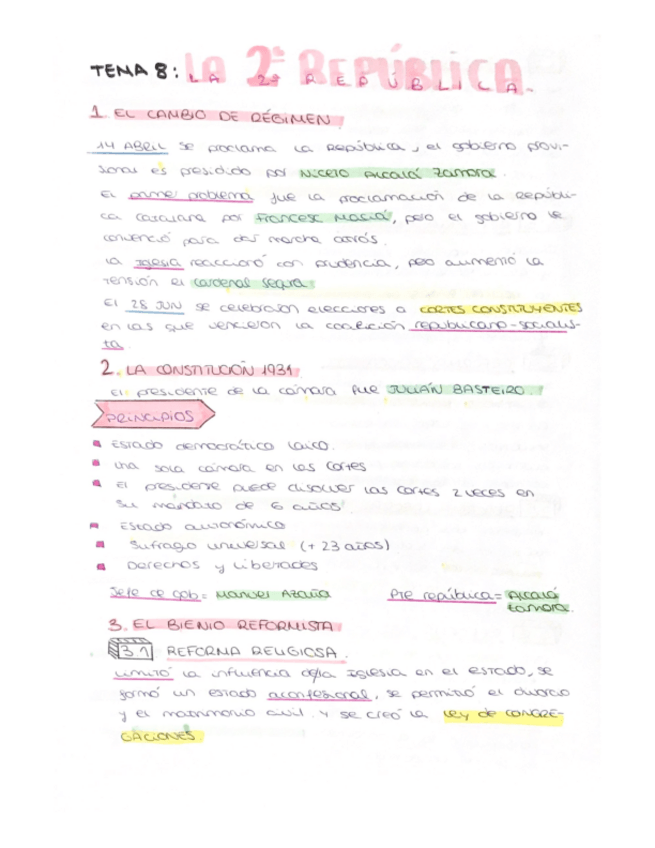 TEMA 8: LA 2ª REPÚBLICA.
1. EL CAMBIO DE RÉGIMEN
14 ABRIL se proclama la República, el gobierno provi-
sional es presidido por Niceto Alcalá Zamora.
El primer problema fue la proclamación de la Repúbli-
ca Catalana por Francesc Macià, pero el gobierno le
convenció para dar marcha atrás.
La Iglesia reaccionó con prudencia, pero aumentó la
tensión el cardenal Segura.
El 28 JUN se celebraron elecciones a CORTES CONSTITUYENTES
en las que vencieron la coalición republicano-socialis-
ta.
2. LA CONSTITUCIÓN 1931
El presidente de la cámara fue JULIÁN BASTEIRO.
PRINCIPIOS
Estado democrático laico.
Una sola cámara en las Cortes
El presidente puede disolver las Cortes 2 veces en
su mandato de 6 años
Estado autonómico
Sufragio universal (+ 23 años)
Derechos y Libertades
Jefe de gob = Manuel Azaña
Pre república = Alcalá
Zamora.
3. EL BIENIO REFORMISTA
3.1 REFORMA RELIGIOSA.
Limitó la influencia de la Iglesia en el estado, se
formó un estado aconfesional, se permitió el divorcio
y el matrimonio civil y se creó la Ley de CONGRE-
GACIONES